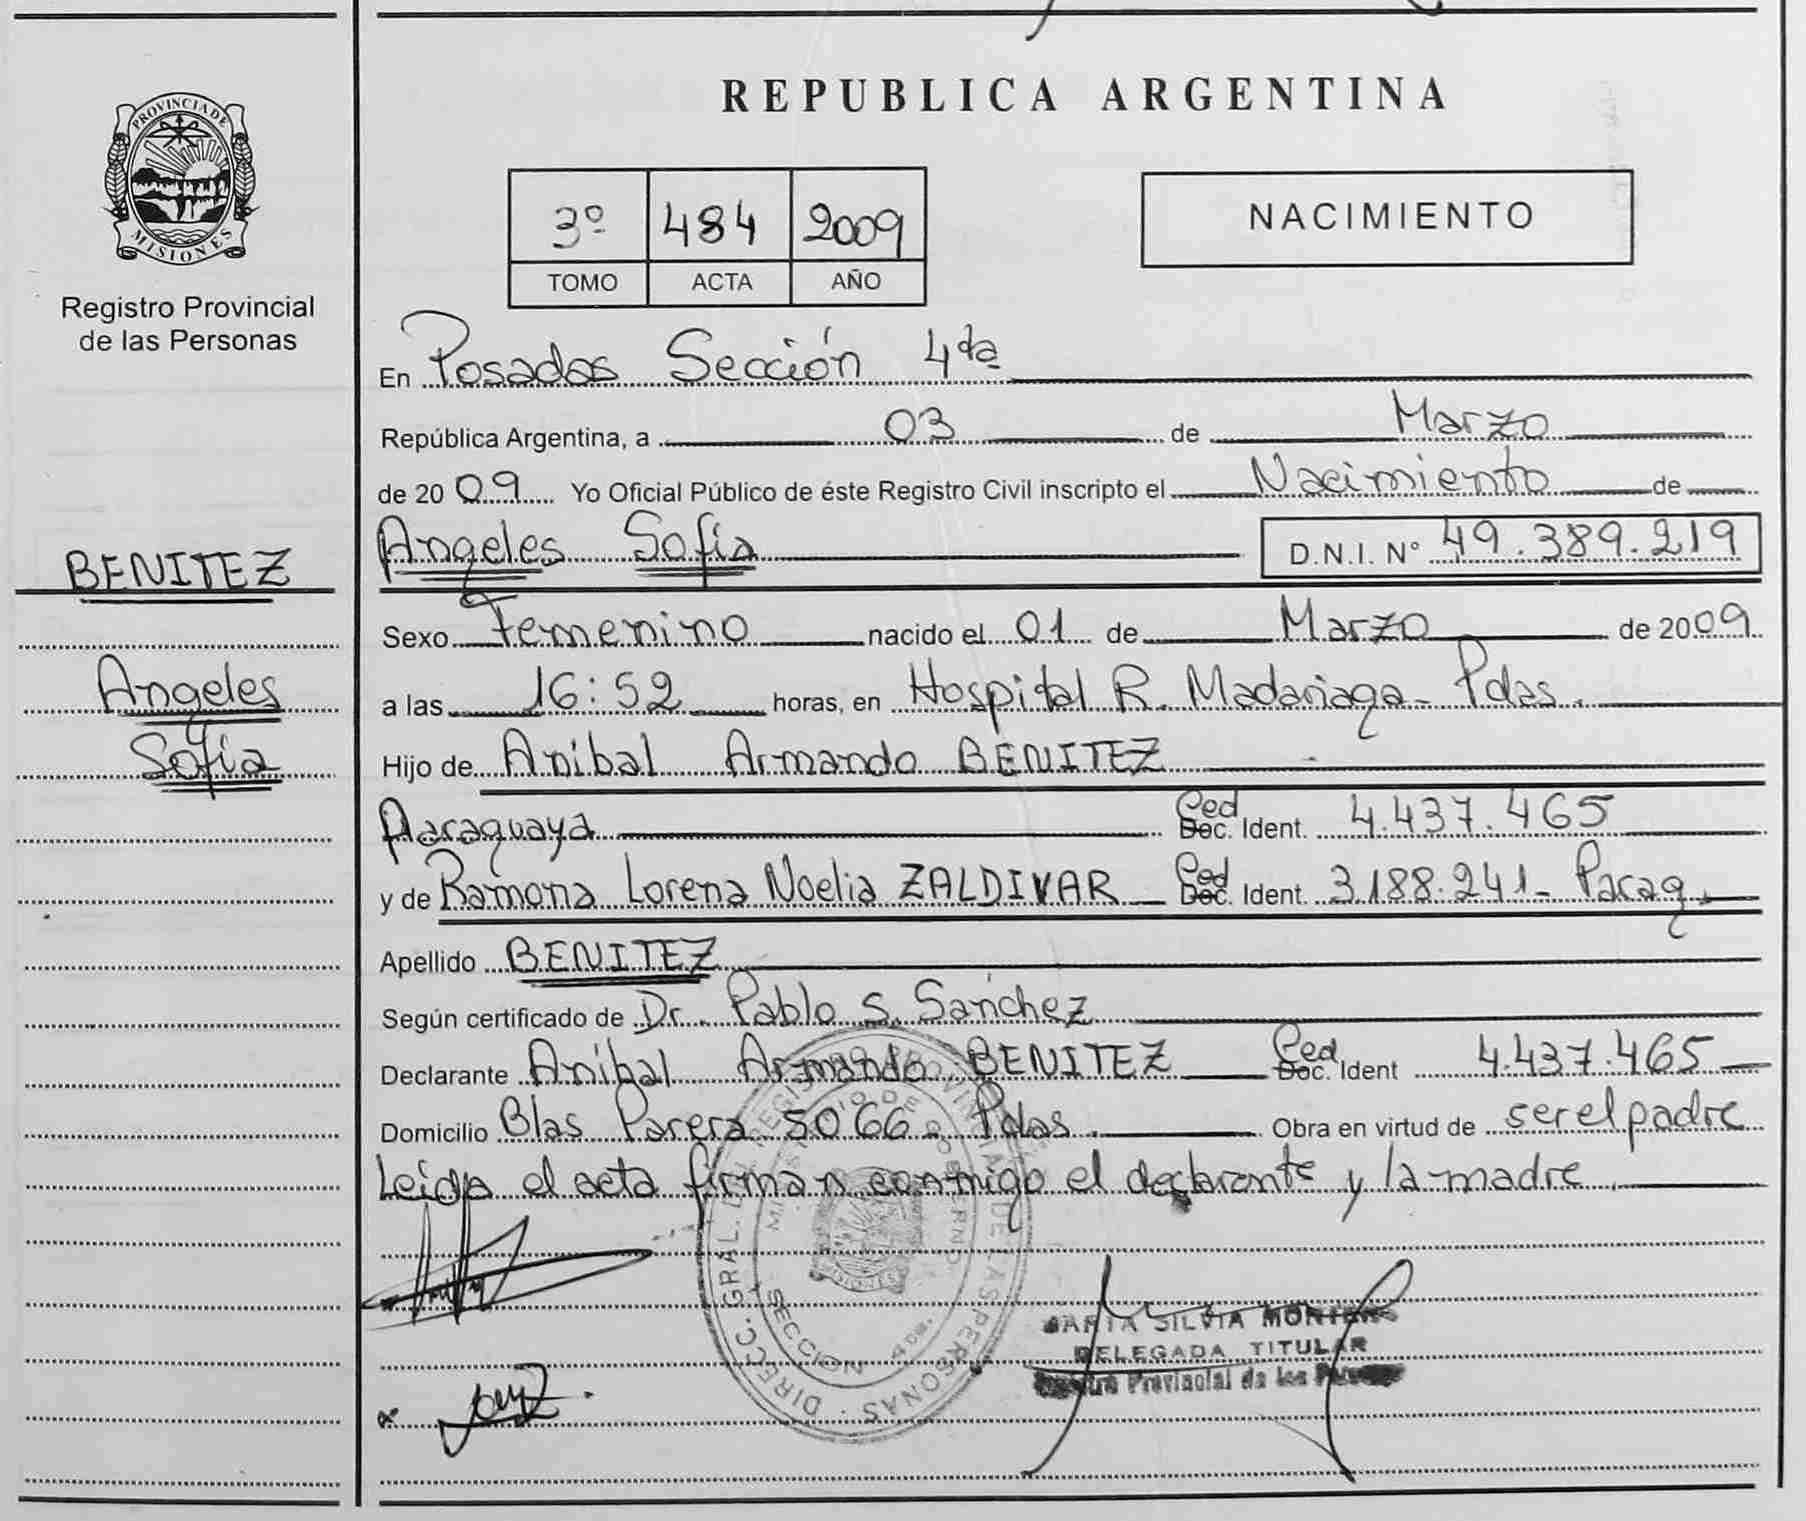 PROVINCIA DE
MISIONES
Registro Provincial
de las Personas
BENITEZ
Angeles
Sofía
REPUBLICA ARGENTINA
3º 484 2009
TOMO ACTA AÑO
NACIMIENTO
En Posadas Sección 4ta
República Argentina, a 03 de Marzo
de 2009 Yo Oficial Público de éste Registro Civil inscripto el Nacimiento de
Angeles Sofía D.N.I. Nº 49.389.219
Sexo Femenino nacido el 01 de Marzo de 2009
a las 16:52 horas, en Hospital R. Madariaga - Pdas.
Hijo de Aníbal Armando BENITEZ
Paraguaya Ced Doc. Ident. 4.437.465
y de Ramona Lorena Noelia ZALDIVAR Ced Doc. Ident. 3.188.241 - Parag.
Apellido BENITEZ
Según certificado de Dr. Pablo S. Sánchez
Declarante Aníbal Armando BENITEZ Ced Doc. Ident 4.437.465
Domicilio Blas Parera 5066 - Pdas. Obra en virtud de ser el padre
Leída el acta firman conmigo el declarante y la madre
DIRECC. GRAL. DEL REGISTRO PROVINCIAL DE LAS PERSONAS
MINISTERIO DE GOBIERNO
MISIONES
SECCION 4ta.
MARIA SILVIA
DELEGADA TITULAR
Registro Provincial de las Personas